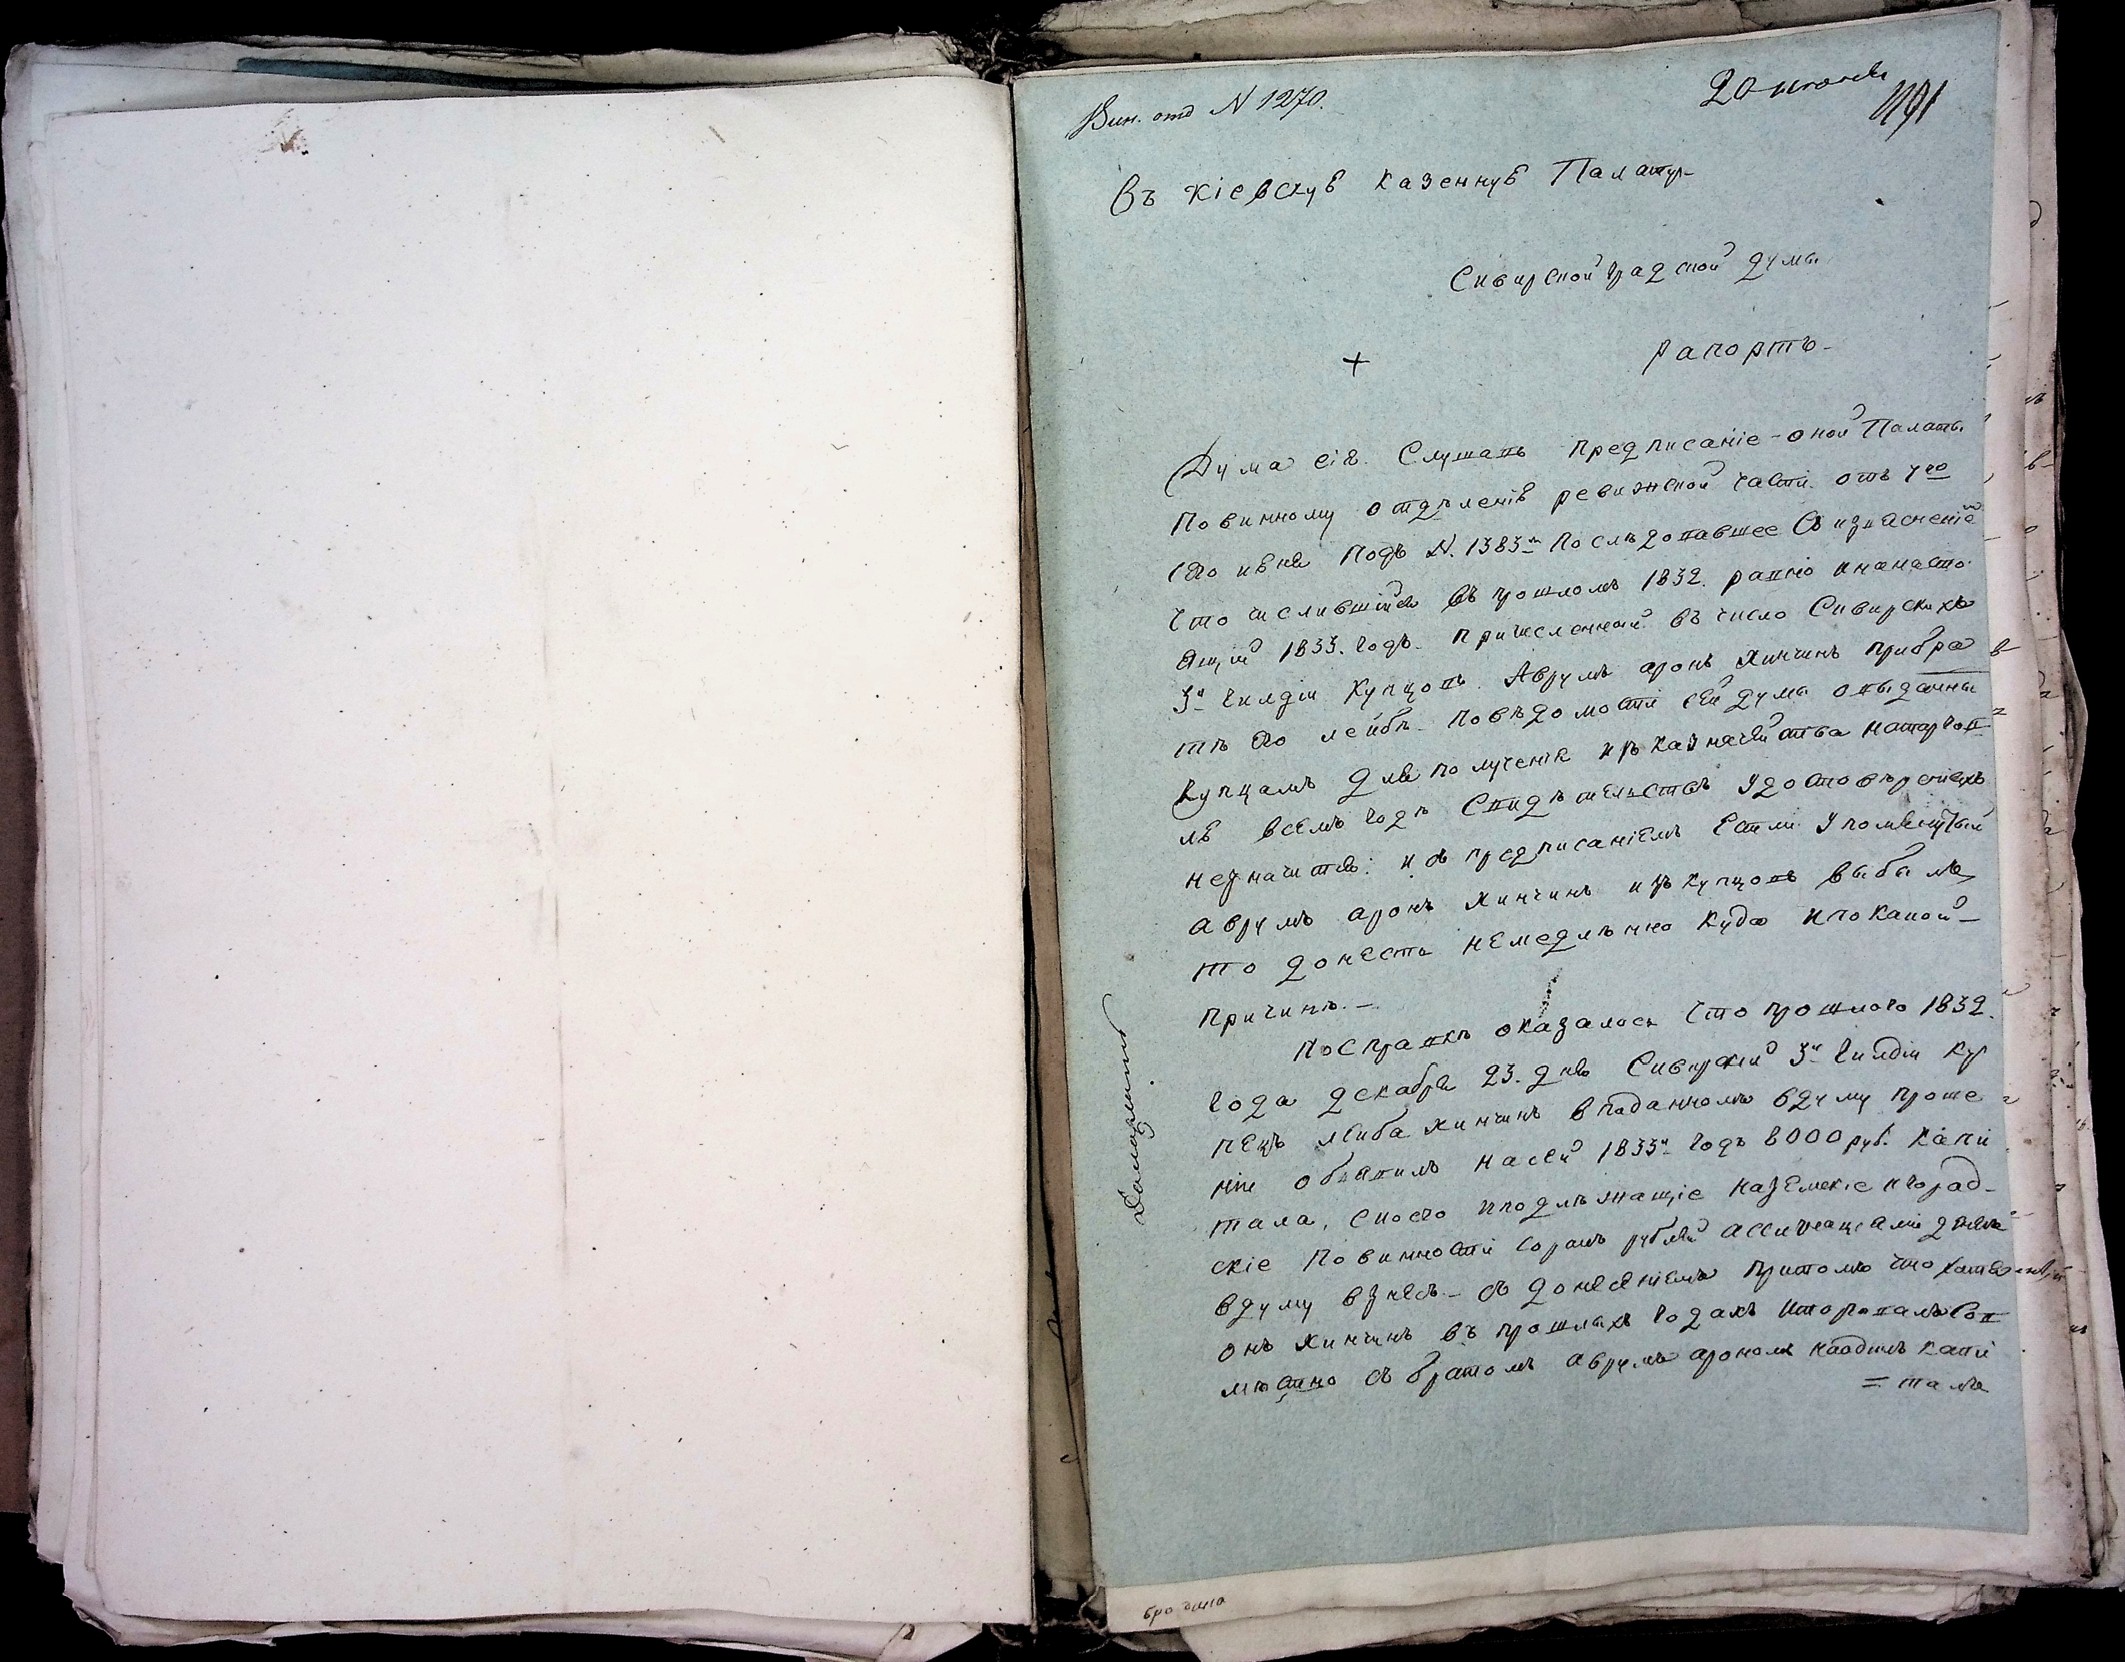 Вин. отд N 1270.
20 июня
491
Въ Кіевскую Казенную Палату
Сквирской градской думы
Рапортъ
Дума сія. Слушавъ предписаніе оной Палаты
По винному отделенію ревижской части отъ 4го
сего июня подъ N. 1383м последовавшее Съ изясненіем
что числившийся въ прошломъ 1832. равно и на насто
ящій 1833. годъ причисленный въ число Сквирскихъ
3й гилдіи Купцовъ Аврумъ аронъ Хинчинъ прибра
тѣ его лейбѣ по вѣдомости сей думы о выданны
Купцамъ для полученія изъ казначейства на торгов
лю всемъ годѣ Свидѣтельствъ удостовѣреніяхъ
незначится: и съ предписаніемъ Естли упомянутый
аврумъ аронъ Хинчинъ изъ купцовъ выбылъ
то донесть немедлѣнно куда и по какой
причинѣ. —
По справкѣ оказалось что прошлого 1832.
года декабря 23. дня Сквирский 3й гилдіи Ку
пецъ лейба Хинчинъ в поданномъ в думу проше
ніи обявилъ на сей 1833й годъ 8000 руб. капи
тала, с коего и подлѣжащіе на земскіе и град-
скіе повинности сорокъ рублей ассигнаціами
в думу взнесъ — съ донесеніемъ притомъ что хотя
онъ Хинчинъ въ прошлыхъ годахъ и торговалъ Сов
мѣстно съ братомъ аврумъ арономъ на одинъ капи
= талъ